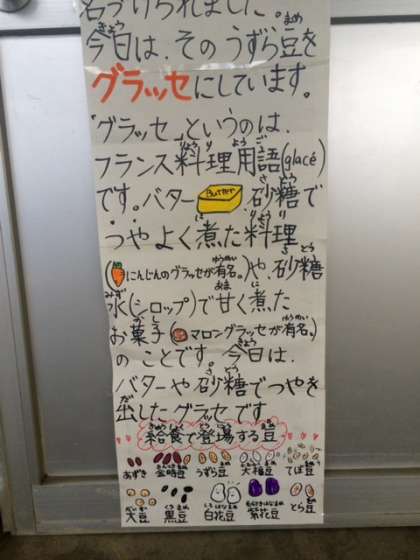 名づけられました。
今日は、そのうずら豆を
グラッセにしています。
「グラッセ」というのは、
フランス料理用語(glacé)
です。バター Butter 砂糖で
つやよく煮た料理
(にんじんのグラッセが有名。)や、砂糖
水(シロップ)で甘く煮た
お菓子(マロングラッセが有名。)
のことです。今日は、
バターや砂糖でつやを
出したグラッセです
給食で登場する豆
あずき 金時豆 うずら豆 大福豆 てぼ豆
大豆 黒豆 白花豆 紫花豆 とら豆